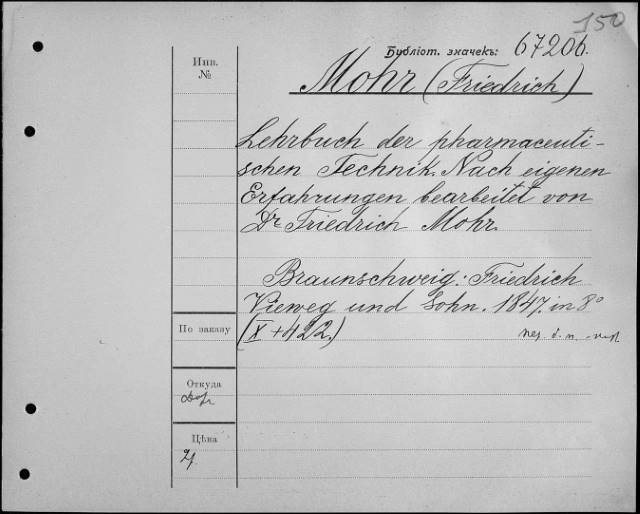 150
Библіот. значекъ: 67206.
Инв.
№
Mohr (Friedrich)
Lehrbuch der pharmaceuti-
schen Technik. Nach eigenen
Erfahrungen bearbeitet von
Dr Friedrich Mohr.
Braunschweig: Friedrich
Vieweg und Sohn. 1847. in 8°
По заказу
(X + 422.)
Откуда
Цѣна